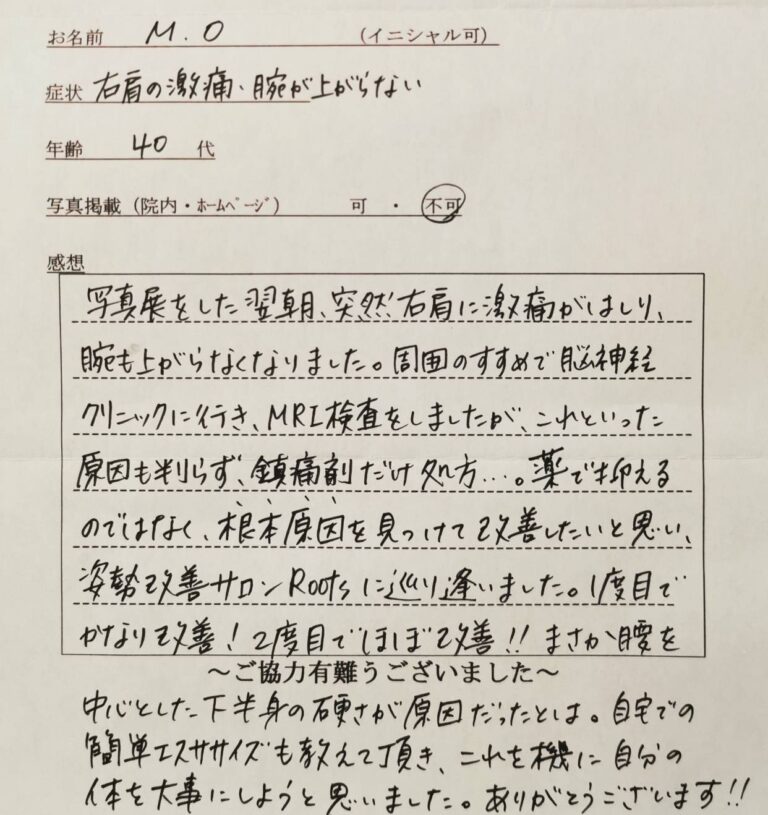 お名前 M.O (イニシャル可)
症状 右肩の激痛・腕が上がらない
年齢 40 代
写真掲載(院内・ホームページ) 可 ・ 不可
感想
写真展をした翌朝、突然右肩に激痛がはしり、
腕も上がらなくなりました。周囲のすすめで脳神経
クリニックに行き、MRI検査をしましたが、これといった
原因も判らず、鎮痛剤だけ処方…。薬で抑える
のではなく、根本原因を見つけて改善したいと思い、
姿勢改善サロンRootsに巡り逢いました。1度目で
かなり改善!2度目でほぼ改善!!まさか腰を
~ご協力有難うございました~
中心とした下半身の硬さが原因だったとは。自宅での
簡単エスササイズも教えて頂き、これを機に自分の
体を大事にしようと思いました。ありがとうございます!!